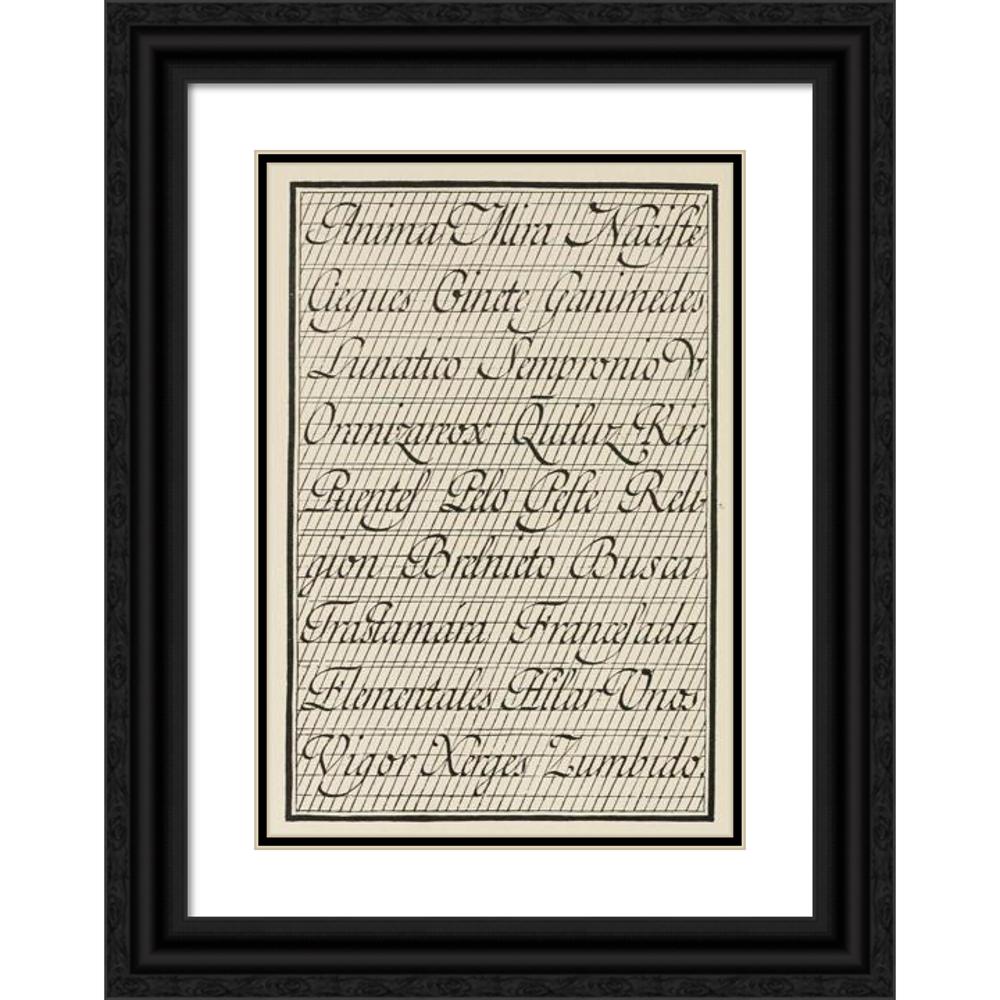 Anima Mira Naciste
Ciegues Ginete Ganimedes
Lunatico Sempronio V
Omnizarrox Q̄uiluz Kir
Puentes Pelo Peste Reli-
gion Brelnieto Busca
Trastamára Francesada
Elementales Pillar Unos
Vigor Xerges Zumbido.